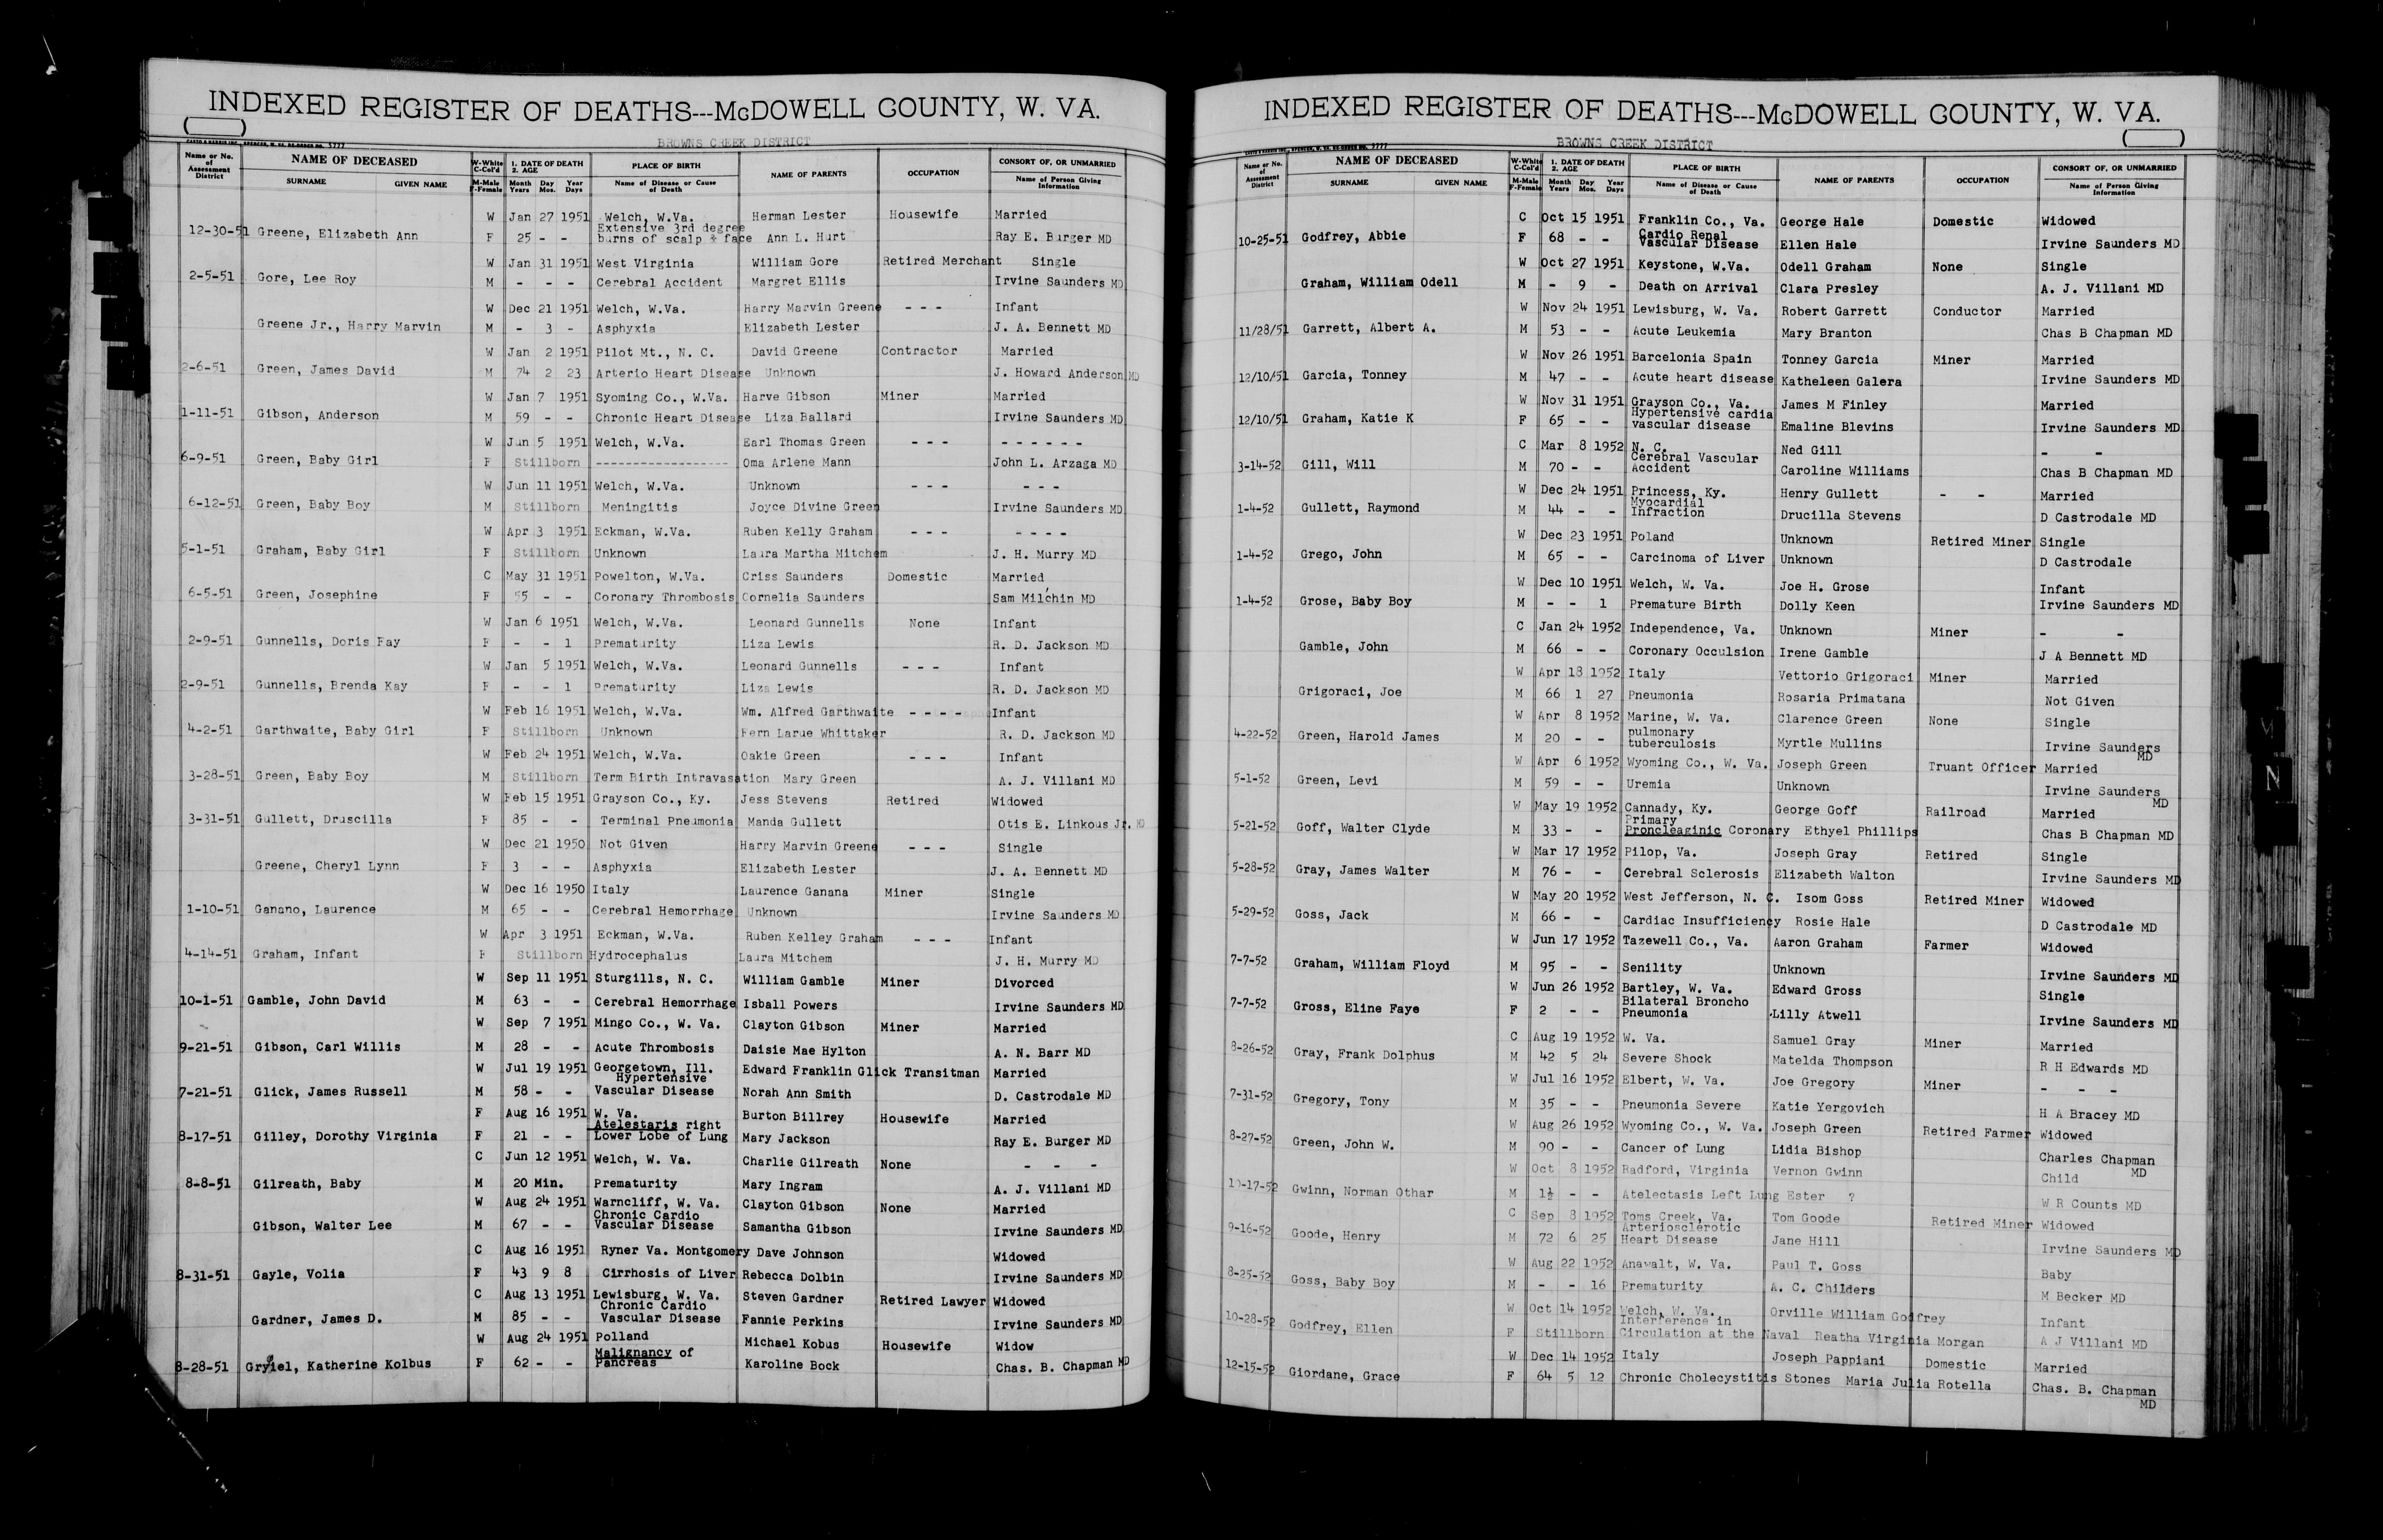 INDEXED REGISTER OF DEATHS---McDOWELL COUNTY, W. VA.
BROWNS CREEK DISTRICT
Name or No. of Assessment District
NAME OF DECEASED
SURNAME GIVEN NAME
W-White C-Col'd
M-Male F-Female
1. DATE OF DEATH 2. AGE
Month Day Year
Years Mos. Days
PLACE OF BIRTH
Name of Disease or Cause of Death
NAME OF PARENTS
OCCUPATION
CONSORT OF, OR UNMARRIED
Name of Person Giving Information
W Jan 27 1951 Welch, W.Va. Herman Lester Housewife Married
12-30-51 Greene, Elizabeth Ann F 25 - - Extensive 3rd degree burns of scalp & face Ann L. Hurt Ray E. Burger MD
W Jan 31 1951 West Virginia William Gore Retired Merchant Single
2-5-51 Gore, Lee Roy M - - - Cerebral Accident Margret Ellis Irvine Saunders MD
W Dec 21 1951 Welch, W.Va. Harry Marvin Greene - - - Infant
Greene Jr., Harry Marvin M - 3 - Asphyxia Elizabeth Lester J. A. Bennett MD
W Jan 2 1951 Pilot Mt., N. C. David Greene Contractor Married
2-6-51 Green, James David M 74 2 23 Arterio Heart Disease Unknown J. Howard Anderson MD
W Jan 7 1951 Syoming Co., W.Va. Harve Gibson Miner Married
1-11-51 Gibson, Anderson M 59 - - Chronic Heart Disease Liza Ballard Irvine Saunders MD
W Jun 5 1951 Welch, W.Va. Earl Thomas Green - - - - - - - - -
6-9-51 Green, Baby Girl F Stillborn ------------------ Oma Arlene Mann John L. Arzaga MD
W Jun 11 1951 Welch, W.Va. Unknown - - - - - -
6-12-51 Green, Baby Boy M Stillborn Meningitis Joyce Divine Green Irvine Saunders MD
W Apr 3 1951 Eckman, W.Va. Ruben Kelly Graham - - - - - - -
5-1-51 Graham, Baby Girl F Stillborn Unknown Laura Martha Mitchem J. H. Murry MD
C May 31 1951 Powelton, W.Va. Criss Saunders Domestic Married
6-5-51 Green, Josephine F 55 - - Coronary Thrombosis Cornelia Saunders Sam Milchin MD
W Jan 6 1951 Welch, W.Va. Leonard Gunnells None Infant
2-9-51 Gunnells, Doris Fay F - - 1 Prematurity Liza Lewis R. D. Jackson MD
W Jan 5 1951 Welch, W.Va. Leonard Gunnells - - - Infant
2-9-51 Gunnells, Brenda Kay F - - 1 Prematurity Liza Lewis R. D. Jackson MD
W Feb 16 1951 Welch, W.Va. Wm. Alfred Garthwaite - - - - Infant
4-2-51 Garthwaite, Baby Girl F Stillborn Unknown Fern Larue Whittaker R. D. Jackson MD
W Feb 24 1951 Welch, W.Va. Oakie Green - - - Infant
3-28-51 Green, Baby Boy M Stillborn Term Birth Intravasation Mary Green A. J. Villani MD
W Feb 15 1951 Grayson Co., Ky. Jess Stevens Retired Widowed
3-31-51 Gullett, Druscilla F 85 - - Terminal Pneumonia Manda Gullett Otis E. Linkous Jr. MD
W Dec 21 1950 Not Given Harry Marvin Greene - - - Single
Greene, Cheryl Lynn F 3 - - Asphyxia Elizabeth Lester J. A. Bennett MD
W Dec 16 1950 Italy Laurence Ganana Miner Single
1-10-51 Ganano, Laurence M 65 - - Cerebral Hemorrhage Unknown Irvine Saunders MD
W Apr 3 1951 Eckman, W.Va. Ruben Kelley Graham - - - Infant
4-14-51 Graham, Infant F Stillborn Hydrocephalus Laura Mitchem J. H. Murry MD
W Sep 11 1951 Sturgills, N. C. William Gamble Miner Divorced
10-1-51 Gamble, John David M 63 - - Cerebral Hemorrhage Isball Powers Irvine Saunders MD
W Sep 7 1951 Mingo Co., W. Va. Clayton Gibson Miner Married
9-21-51 Gibson, Carl Willis M 28 - - Acute Thrombosis Daisie Mae Hylton A. N. Barr MD
W Jul 19 1951 Georgetown, Ill. Edward Franklin Glick Transitman Married
7-21-51 Glick, James Russell M 58 - - Hypertensive Vascular Disease Norah Ann Smith D. Castrodale MD
F Aug 16 1951 W. Va. Burton Billrey Housewife Married
8-17-51 Gilley, Dorothy Virginia F 21 - - Atelestaris right Lower Lobe of Lung Mary Jackson Ray E. Burger MD
C Jun 12 1951 Welch, W. Va. Charlie Gilreath None - - -
8-8-51 Gilreath, Baby M 20 Min. Prematurity Mary Ingram A. J. Villani MD
W Aug 24 1951 Warncliff, W. Va. Clayton Gibson None Married
Gibson, Walter Lee M 67 - - Chronic Cardio Vascular Disease Samantha Gibson Irvine Saunders MD
C Aug 16 1951 Ryner Va. Montgomery Dave Johnson Widowed
8-31-51 Gayle, Volia F 43 9 8 Cirrhosis of Liver Rebecca Dolbin Irvine Saunders MD
C Aug 13 1951 Lewisburg, W. Va. Steven Gardner Retired Lawyer Widowed
Gardner, James D. M 85 - - Chronic Cardio Vascular Disease Fannie Perkins Irvine Saunders MD
W Aug 24 1951 Polland Michael Kobus Housewife Widow
8-28-51 Katherine Kolbus F 62 - - Malignancy of Pancreas Karoline Bock Chas. B. Chapman MD
INDEXED REGISTER OF DEATHS---McDOWELL COUNTY, W. VA.
BROWNS CREEK DISTRICT
Name or No. of Assessment District
NAME OF DECEASED
SURNAME GIVEN NAME
W-White C-Col'd
M-Male F-Female
1. DATE OF DEATH 2. AGE
Month Day Year
Years Mos. Days
PLACE OF BIRTH
Name of Disease or Cause of Death
NAME OF PARENTS
OCCUPATION
CONSORT OF, OR UNMARRIED
Name of Person Giving Information
C Oct 15 1951 Franklin Co., Va. George Hale Domestic Widowed
10-25-51 Godfrey, Abbie F 68 - - Cardio Renal Vascular Disease Ellen Hale Irvine Saunders MD
W Oct 27 1951 Keystone, W.Va. Odell Graham None Single
Graham, William Odell M - 9 - Death on Arrival Clara Presley A. J. Villani MD
W Nov 24 1951 Lewisburg, W. Va. Robert Garrett Conductor Married
11/28/51 Garrett, Albert A. M 53 - - Acute Leukemia Mary Branton Chas B Chapman MD
W Nov 26 1951 Barcelonia Spain Tonney Garcia Miner Married
12/10/51 Garcia, Tonney M 47 - - Acute heart disease Katheleen Galera Irvine Saunders MD
W Nov 31 1951 Grayson Co., Va. James M Finley Married
12/10/51 Graham, Katie K F 65 - - Hypertensive cardia vascular disease Emaline Blevins Irvine Saunders MD
C Mar 8 1952 N. C. Ned Gill - -
3-14-52 Gill, Will M 70 - - Cerebral Vascular Accident Caroline Williams Chas B Chapman MD
W Dec 24 1951 Princess, Ky. Henry Gullett - - Married
1-4-52 Gullett, Raymond M 44 - - Myocardial Infraction Drucilla Stevens D Castrodale MD
W Dec 23 1951 Poland Unknown Retired Miner Single
1-4-52 Grego, John M 65 - - Carcinoma of Liver Unknown D Castrodale
W Dec 10 1951 Welch, W. Va. Joe H. Grose Infant
1-4-52 Grose, Baby Boy M - - 1 Premature Birth Dolly Keen Irvine Saunders MD
C Jan 24 1952 Independence, Va. Unknown Miner - -
Gamble, John M 66 - - Coronary Occulsion Irene Gamble J A Bennett MD
W Apr 18 1952 Italy Vettorio Grigoraci Miner Married
Grigoraci, Joe M 66 1 27 Pneumonia Rosaria Primatana Not Given
W Apr 8 1952 Marine, W. Va. Clarence Green None Single
4-22-52 Green, Harold James M 20 - - pulmonary tuberculosis Myrtle Mullins Irvine Saunders MD
W Apr 6 1952 Wyoming Co., W. Va. Joseph Green Truant Officer Married
5-1-52 Green, Levi M 59 - - Uremia Unknown Irvine Saunders MD
W May 19 1952 Cannady, Ky. George Goff Railroad Married
5-21-52 Goff, Walter Clyde M 33 - - Primary Proncleaginic Coronary Ethyel Phillips Chas B Chapman MD
W Mar 17 1952 Pilop, Va. Joseph Gray Retired Single
5-28-52 Gray, James Walter M 76 - - Cerebral Sclerosis Elizabeth Walton Irvine Saunders MD
W May 20 1952 West Jefferson, N. C. Isom Goss Retired Miner Widowed
5-29-52 Goss, Jack M 66 - - Cardiac Insufficiency Rosie Hale D Castrodale MD
W Jun 17 1952 Tazewell Co., Va. Aaron Graham Farmer Widowed
7-7-52 Graham, William Floyd M 95 - - Senility Unknown Irvine Saunders MD
W Jun 26 1952 Bartley, W. Va. Edward Gross Single
7-7-52 Gross, Eline Faye F 2 - - Bilateral Broncho Pneumonia Lilly Atwell Irvine Saunders MD
C Aug 19 1952 W. Va. Samuel Gray Miner Married
8-26-52 Gray, Frank Dolphus M 42 5 24 Severe Shock Matelda Thompson R H Edwards MD
W Jul 16 1952 Elbert, W. Va. Joe Gregory Miner - - -
7-31-52 Gregory, Tony M 35 - - Pneumonia Severe Katie Yergovich H A Bracey MD
W Aug 26 1952 Wyoming Co., W. Va. Joseph Green Retired Farmer Widowed
8-27-52 Green, John W. M 90 - - Cancer of Lung Lidia Bishop Charles Chapman MD
W Oct 8 1952 Radford, Virginia Vernon Gwinn Child
10-17-52 Gwinn, Norman Othar M 1½ - - Atelectasis Left Lung Ester ? W R Counts MD
C Sep 8 1952 Toms Creek, Va. Tom Goode Retired Miner Widowed
9-16-52 Goode, Henry M 72 6 25 Arteriosclerotic Heart Disease Jane Hill Irvine Saunders MD
W Aug 22 1952 Anawalt, W. Va. Paul T. Goss Baby
8-25-52 Goss, Baby Boy M - - 16 Prematurity A. C. Childers M Becker MD
W Oct 14 1952 Welch, W. Va. Orville William Godfrey Infant
10-28-52 Godfrey, Ellen F Stillborn Interference in Circulation at the Naval Reatha Virginia Morgan A J Villani MD
W Dec 14 1952 Italy Joseph Pappiani Domestic Married
12-15-52 Giordane, Grace F 64 5 12 Chronic Cholecystitis Stones Maria Julia Rotella Chas. B. Chapman MD